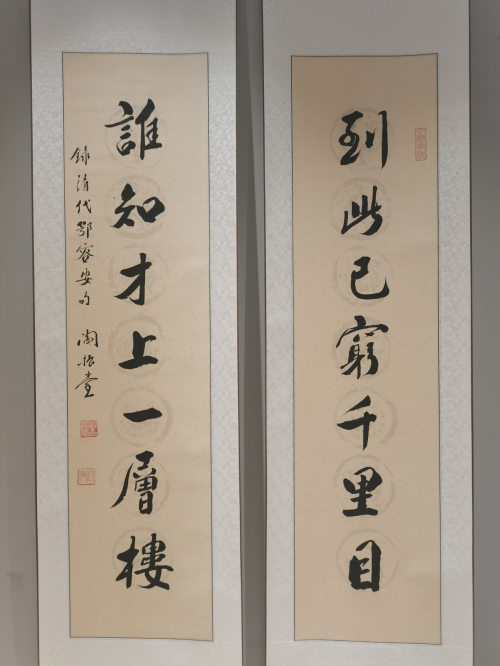 到此已窮千里目
誰知才上一層樓
錄清代鄂容安句 陶振堂